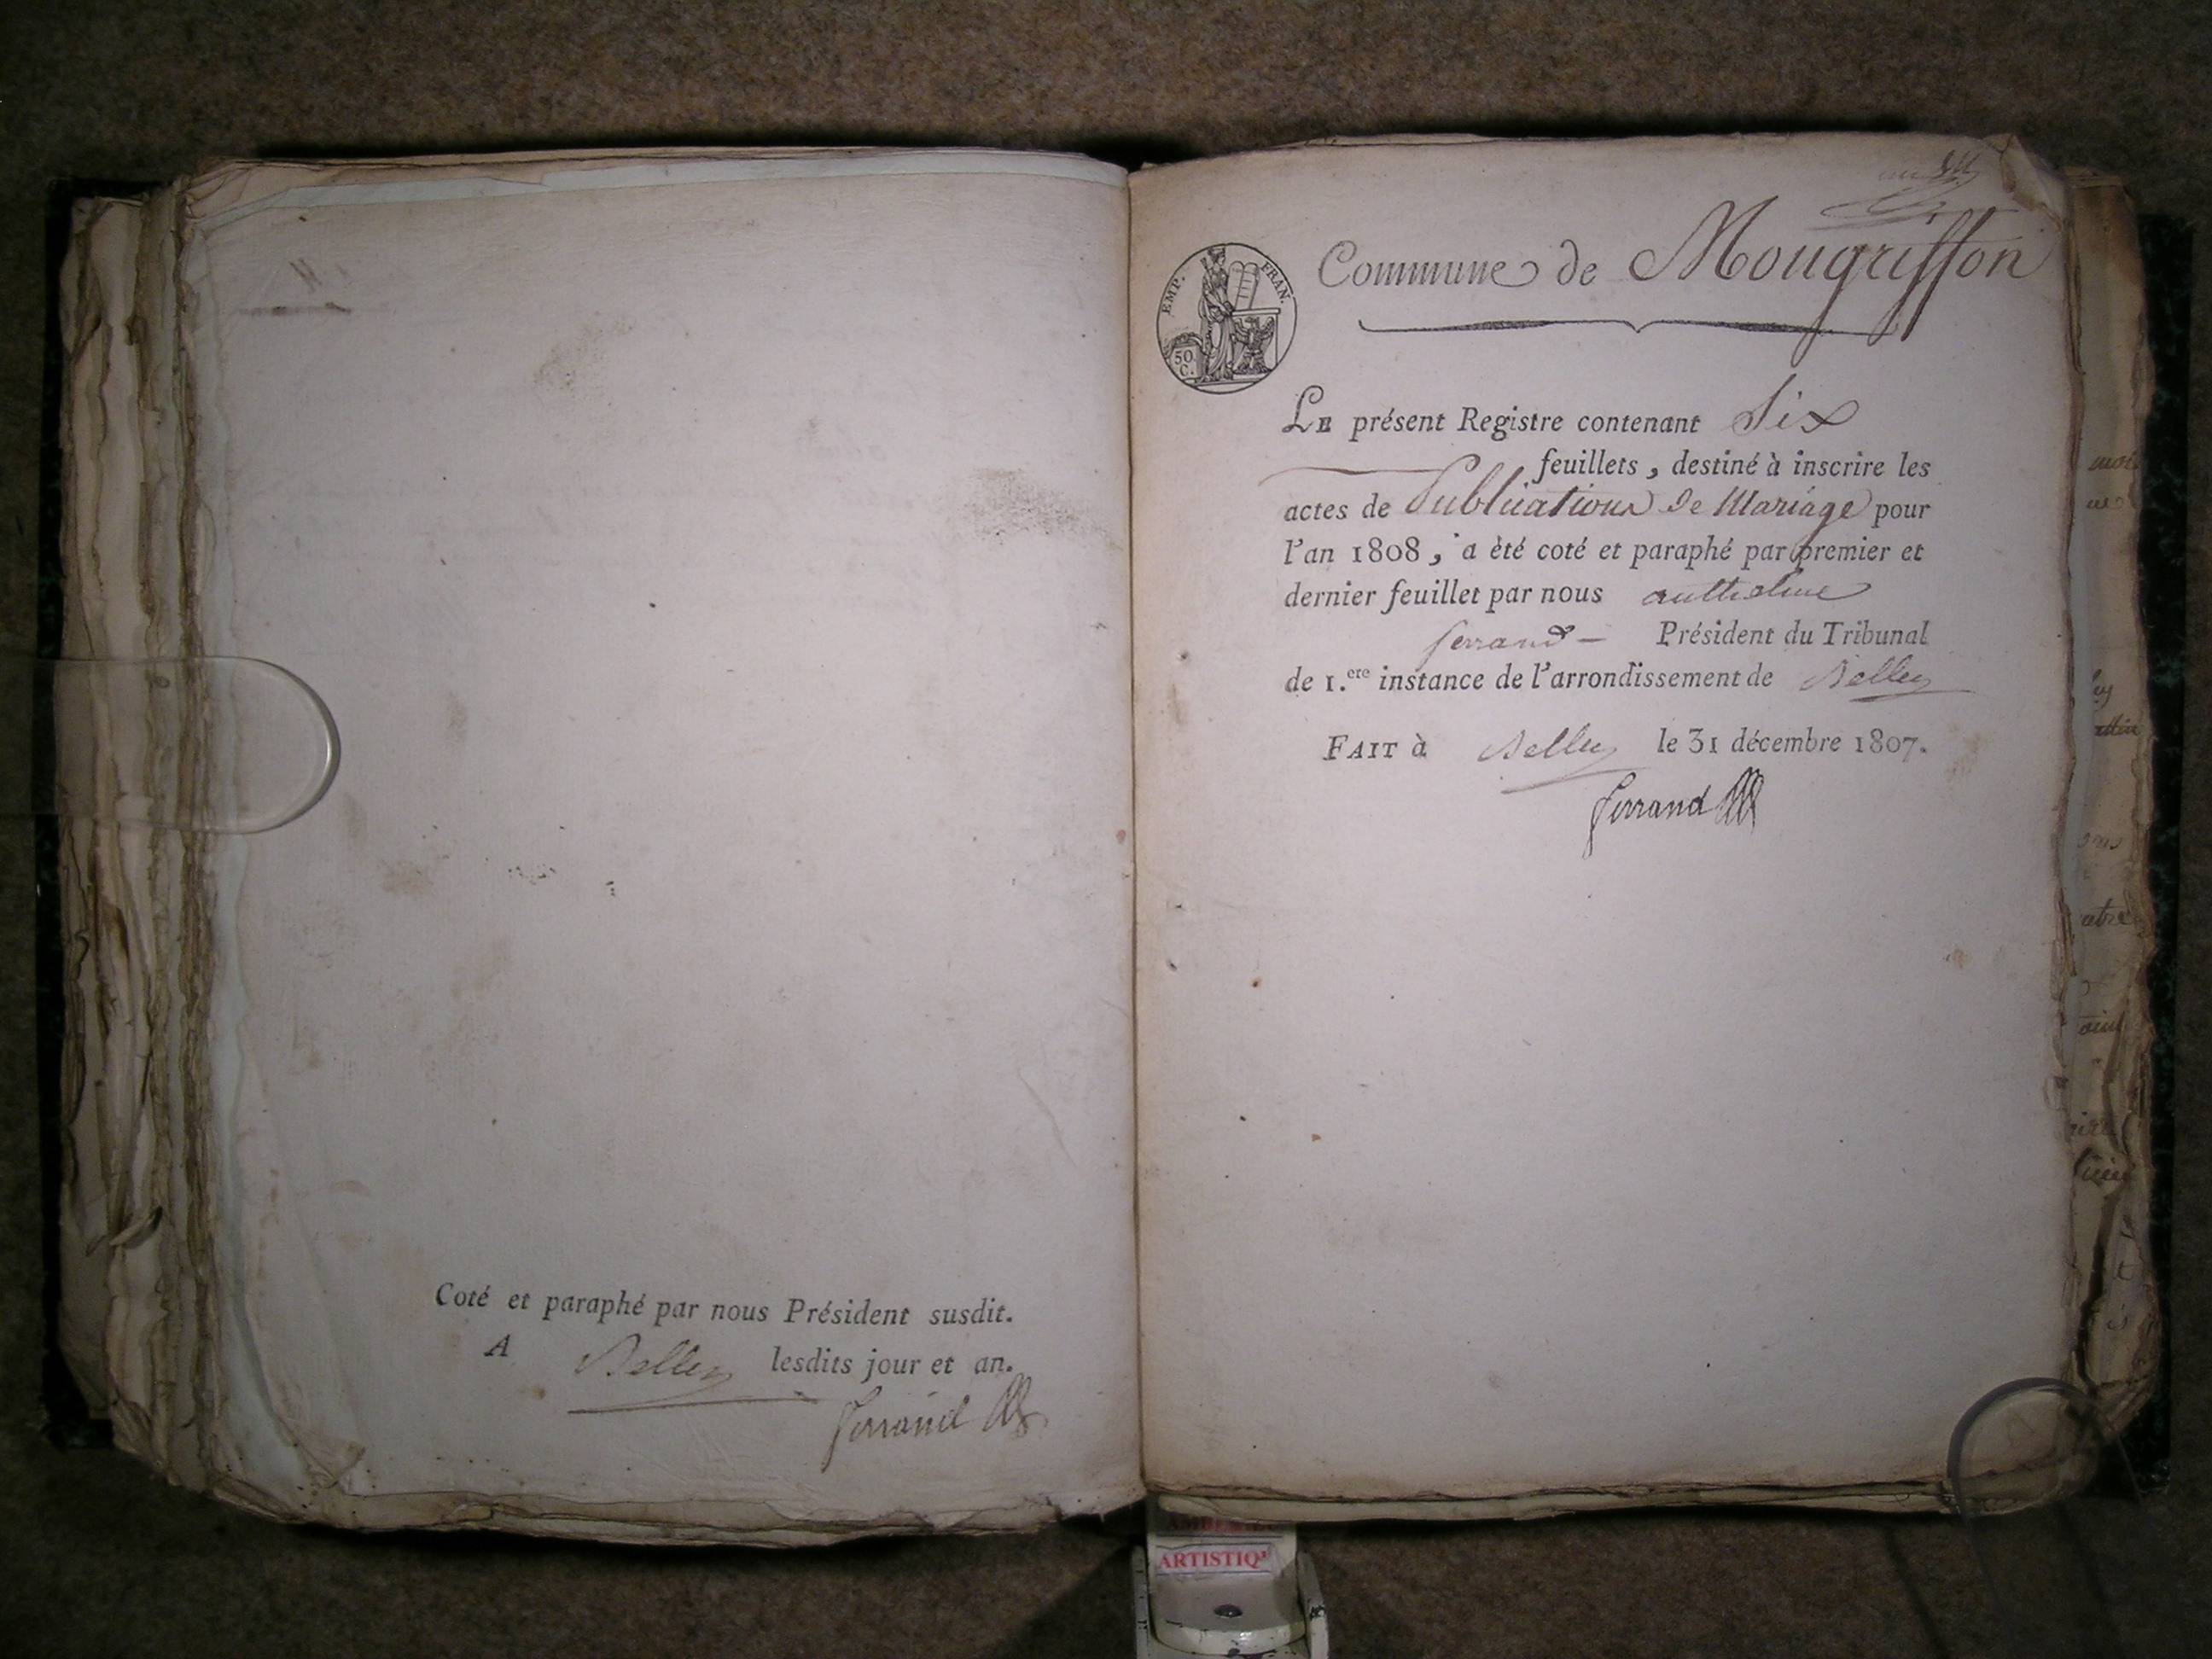 Coté et paraphé par nous Président susdit.
A Belley lesdits jour et an.
Ferrand
Commune de Mougriffon
EMP. FRAN.
50 C.
LE présent Registre contenant Six
feuillets, destiné à inscrire les
actes de Publications de Mariage pour
l'an 1808, a été coté et paraphé par premier et
dernier feuillet par nous anthelme
ferrand — Président du Tribunal
de 1.ere instance de l'arrondissement de Belley
FAIT à Belley le 31 décembre 1807.
Ferrand
ARTISTIQ